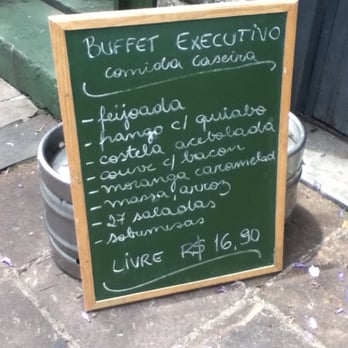 BUFFET EXECUTIVO
comida caseira
- feijoada
- frango c/ quiabo
- costela acebolada
- couve c/ bacon
- moranga caramelad
- massa, arroz
- 27 saladas
- sobremesas
LIVRE R$ 16,90